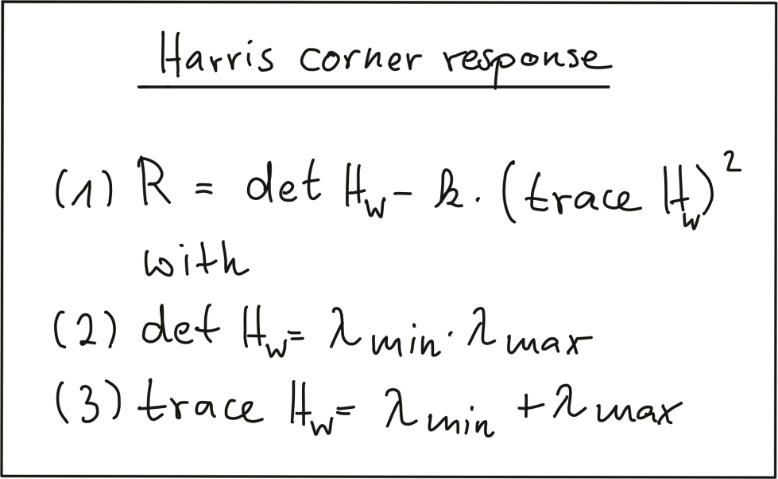 Harris corner response
(1) R = det H_w - k. (trace H_w)²
with
(2) det H_w = λ min · λ max
(3) trace H_w = λ min + λ max